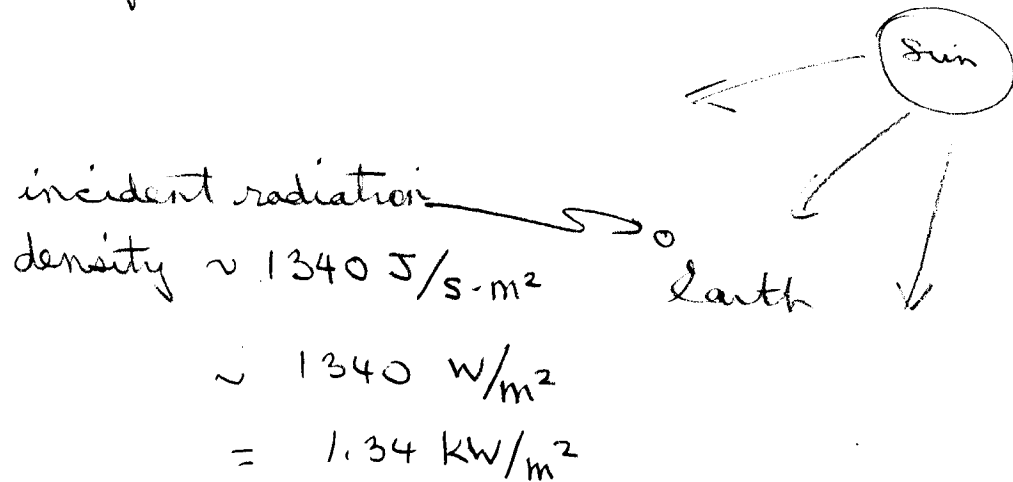 Sun
incident radiation
density ~ 1340 J/s-m²
Earth
~ 1340 W/m²
= 1.34 kW/m²